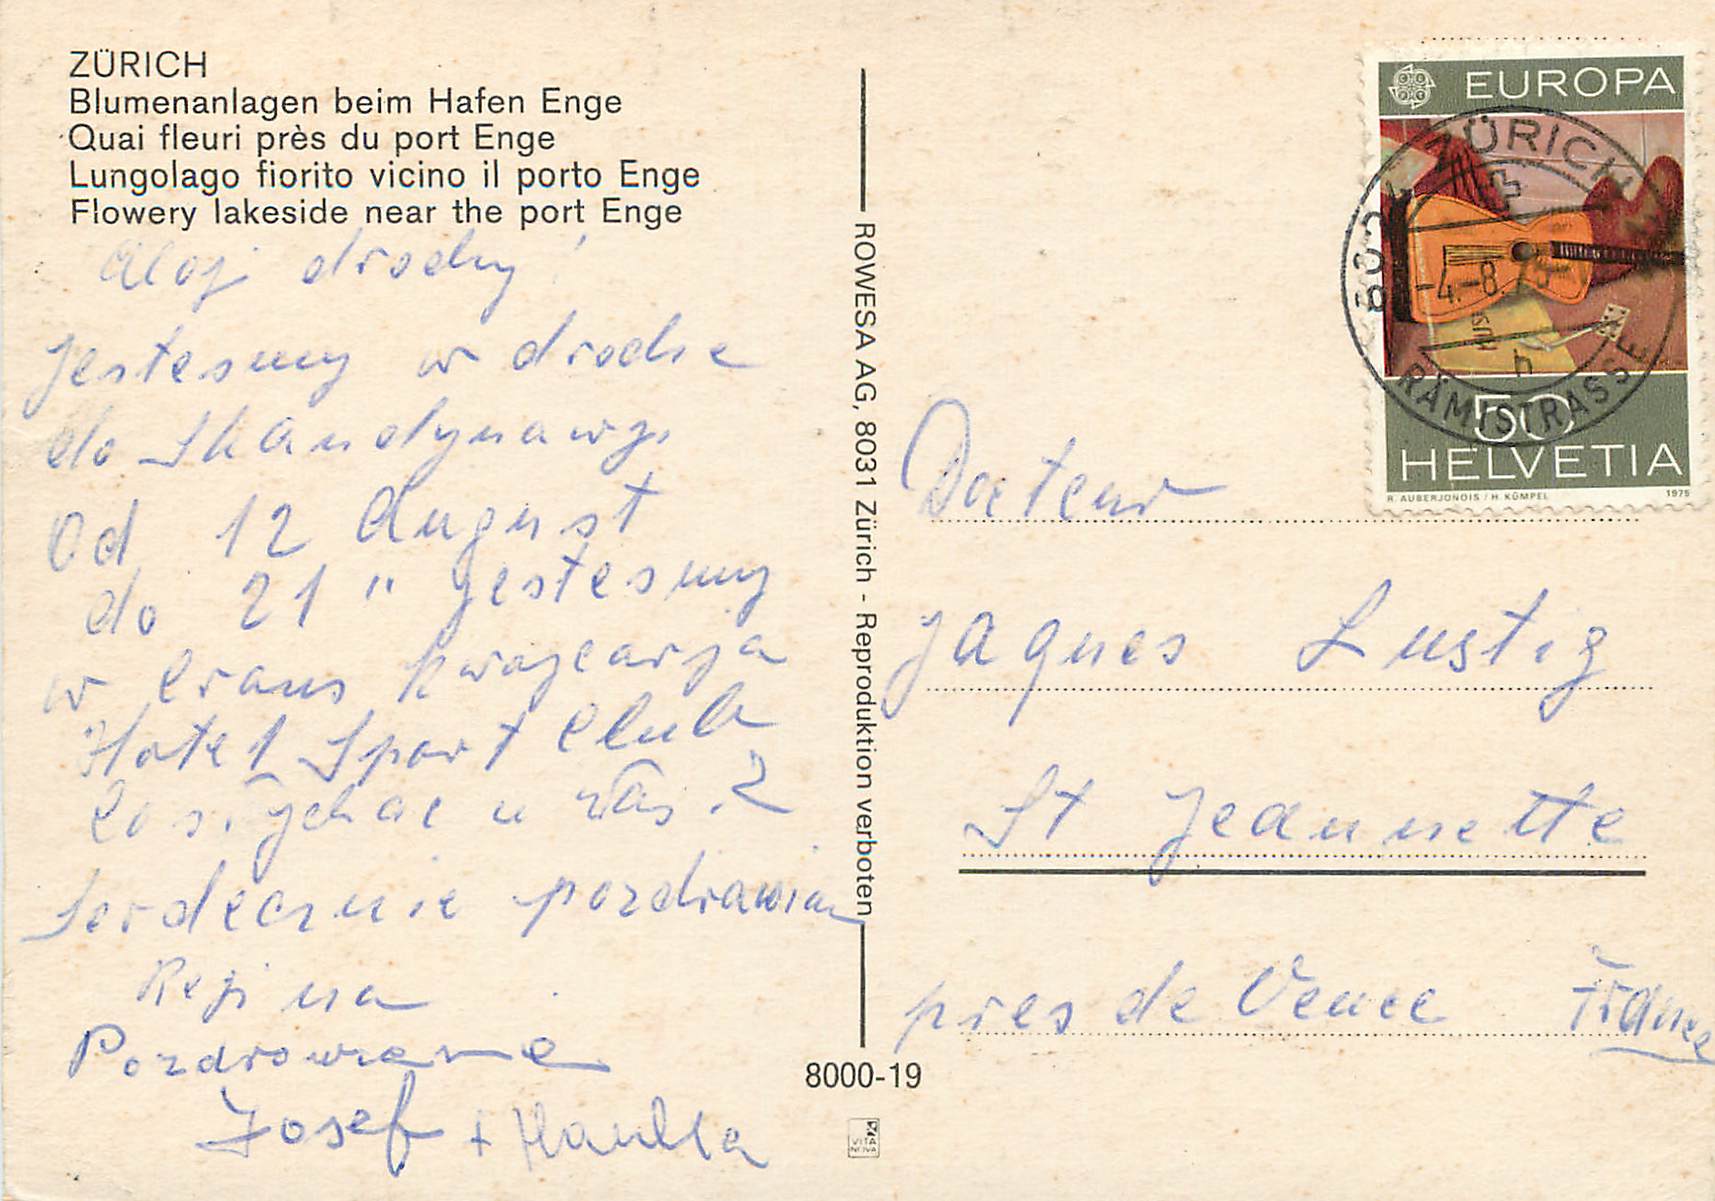 ZÜRICH
Blumenanlagen beim Hafen Enge
Quai fleuri près du port Enge
Lungolago fiorito vicino il porto Enge
Flowery lakeside near the port Enge
drodzy!
Jestesmy w drodze
do Skandynawji
Od 12 August
do 21 " jestesmy
w Crans
Hotel Sport Club
Co słychac u Was?
Serdecznie pozdrawiam
Regina
Pozdrowienia
Josef +
ROWESA AG, 8031 Zürich - Reproduktion verboten
8000-19
VITA
NOVA
EUROPA
8001 ZÜRICH
-4.-8.
RÄMISTRASSE
50
HELVETIA
R. AUBERJONOIS / H. KÜMPEL 1975
Docteur
Jaques Lustig
St Jeannette
pres de Vence France